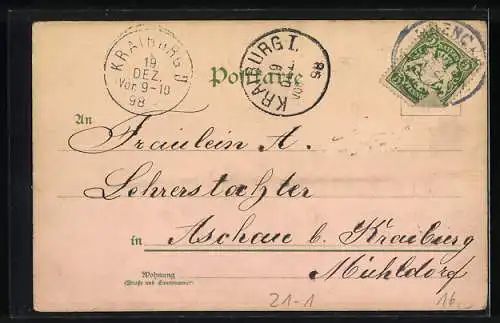 KRAIBURG I
19
DEZ.
Vor. 9-10
98
KRAIBURG I.
98
Postkarte
An
Fräulein A.
Lehrerstochter
in Aschau b. Kraiburg
Mühldorf
Wohnung
(Straße und Hausnummer)
21-1
16.-